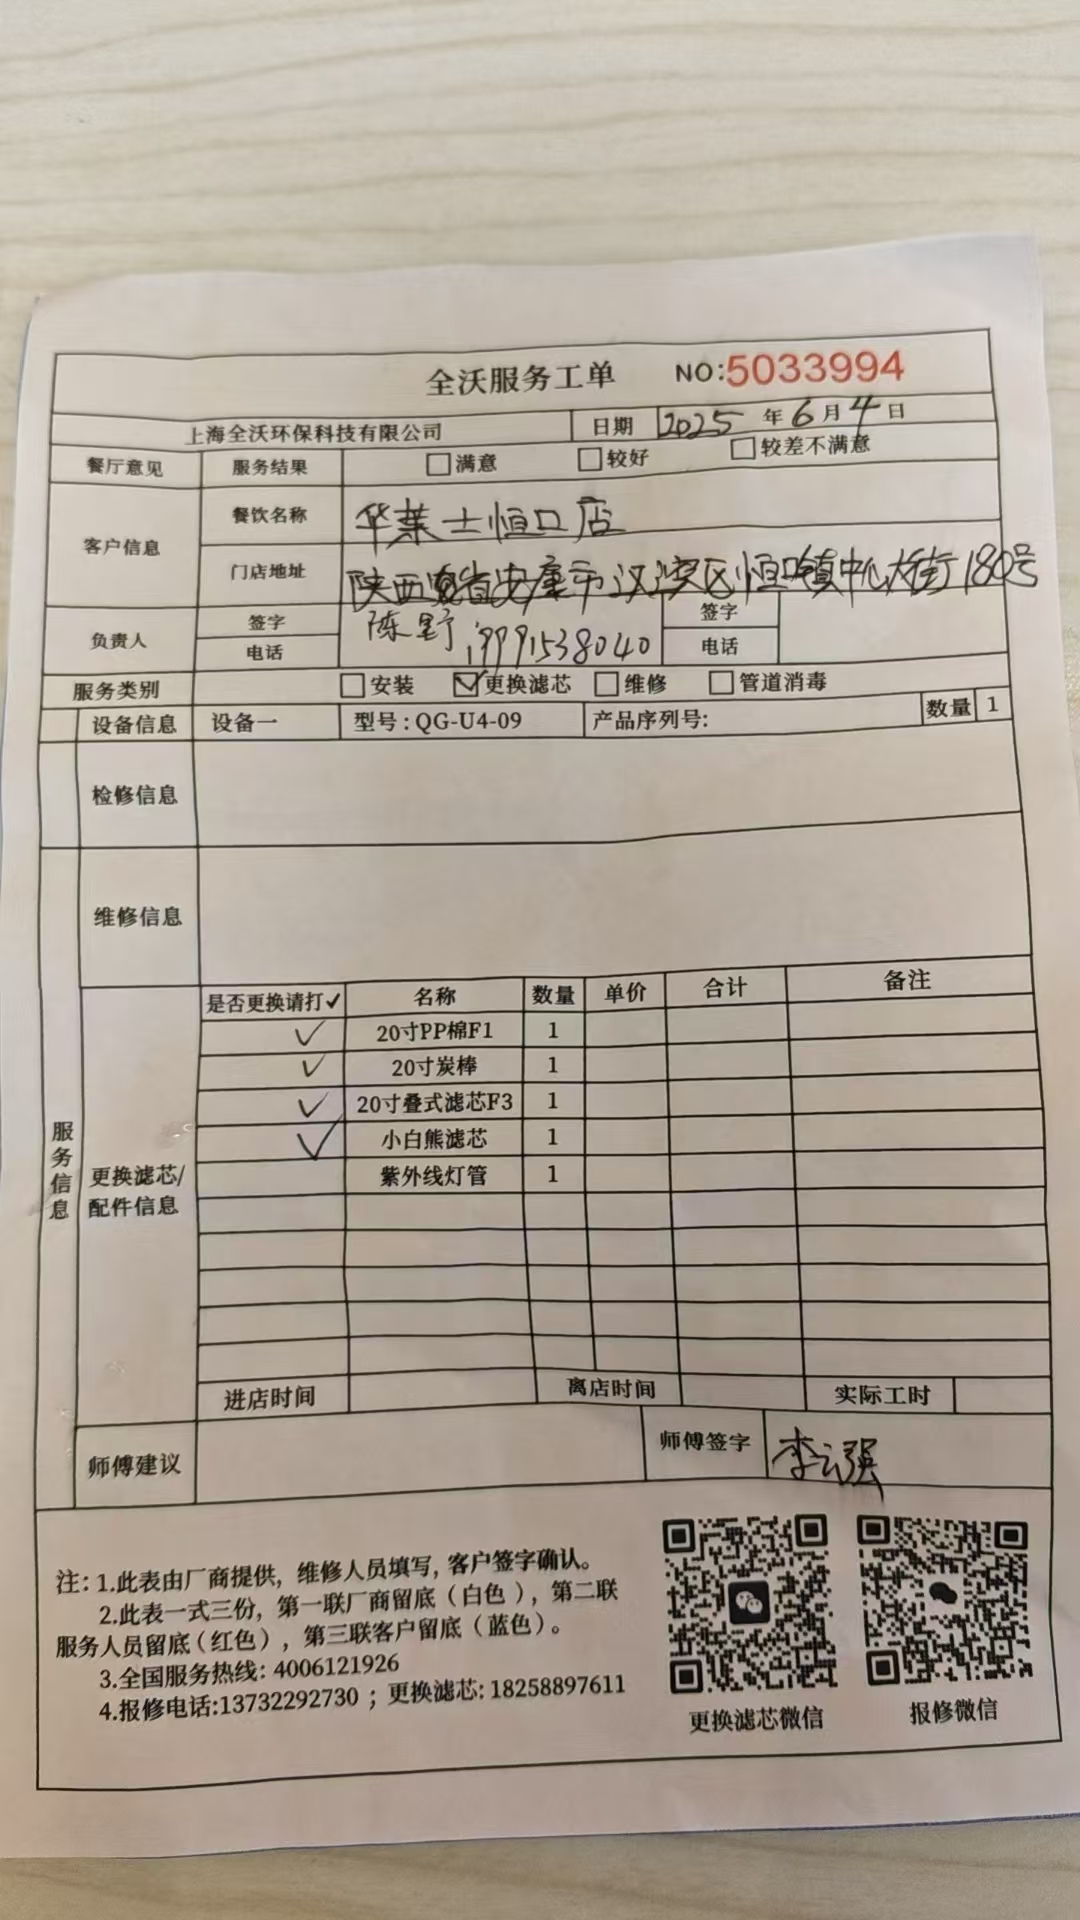 全沃服务工单 NO:5033994
上海全沃环保科技有限公司 日期 2025 年 6 月 4 日
餐厅意见 服务结果 □满意 □较好 □较差不满意
客户信息 餐饮名称 华莱士恒口店
门店地址 陕西省安康市汉滨区恒口镇中心大街180号
负责人 签字 陈野 签字
电话 19991538040 电话
服务类别 □安装 ☑更换滤芯 □维修 □管道消毒
设备信息 设备一 型号:QG-U4-09 产品序列号: 数量 1
检修信息
维修信息
服务信息
更换滤芯/配件信息
是否更换请打✓ 名称 数量 单价 合计 备注
✓ 20寸PP棉F1 1
✓ 20寸炭棒 1
✓ 20寸叠式滤芯F3 1
✓ 小白熊滤芯 1
紫外线灯管 1
进店时间 离店时间 实际工时
师傅建议 师傅签字 李云强
注: 1.此表由厂商提供, 维修人员填写, 客户签字确认。
2.此表一式三份, 第一联厂商留底(白色), 第二联
服务人员留底(红色), 第三联客户留底(蓝色)。
3.全国服务热线: 4006121926
4.报修电话:13732292730 ; 更换滤芯: 18258897611
更换滤芯微信 报修微信